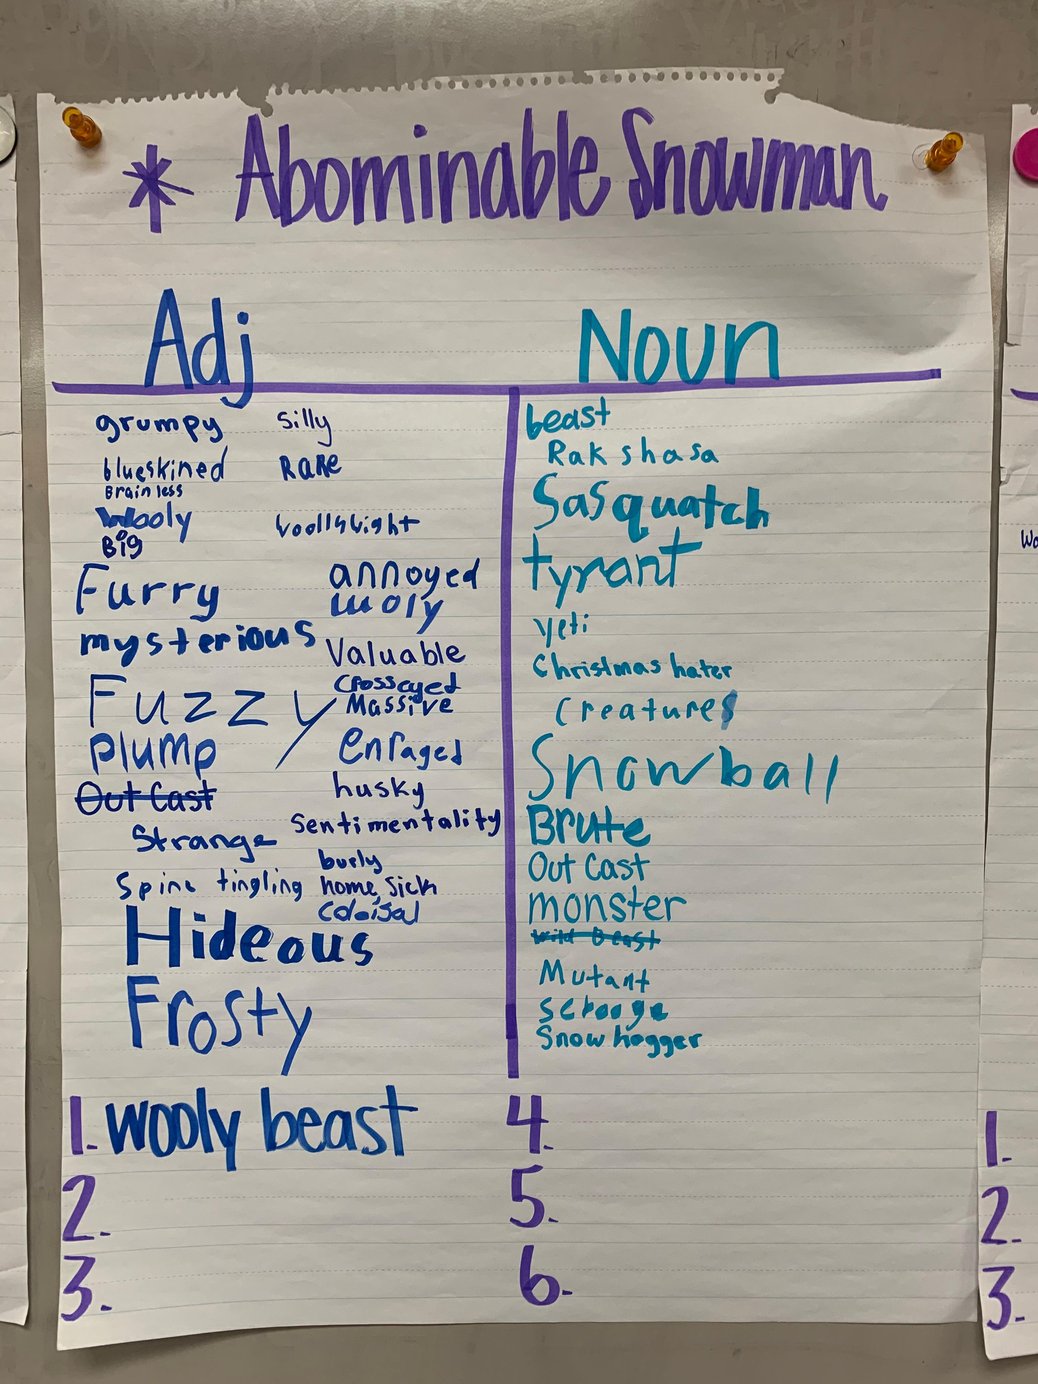 * Abominable Snowman
Adj
Noun
grumpy
blueskined
Brainless
Wooly
Big
Furry
mysterious
Fuzzy
plump
Out Cast
Strange
Spine tingling
Hideous
Frosty
silly
RaRe
annoyed
wooly
Valuable
Crosseyed
Massive
enraged
husky
Sentimentality
burly
home sick
Coloisal
beast
Rakshasa
Sasquatch
tyrant
yeti
Christmas hater
Creatures
Snowball
Brute
Out Cast
monster
wild Beast
Mutant
scrooge
Snow hogger
1. wooly beast
2.
3.
4.
5.
6.
Wo
1.
2.
3.